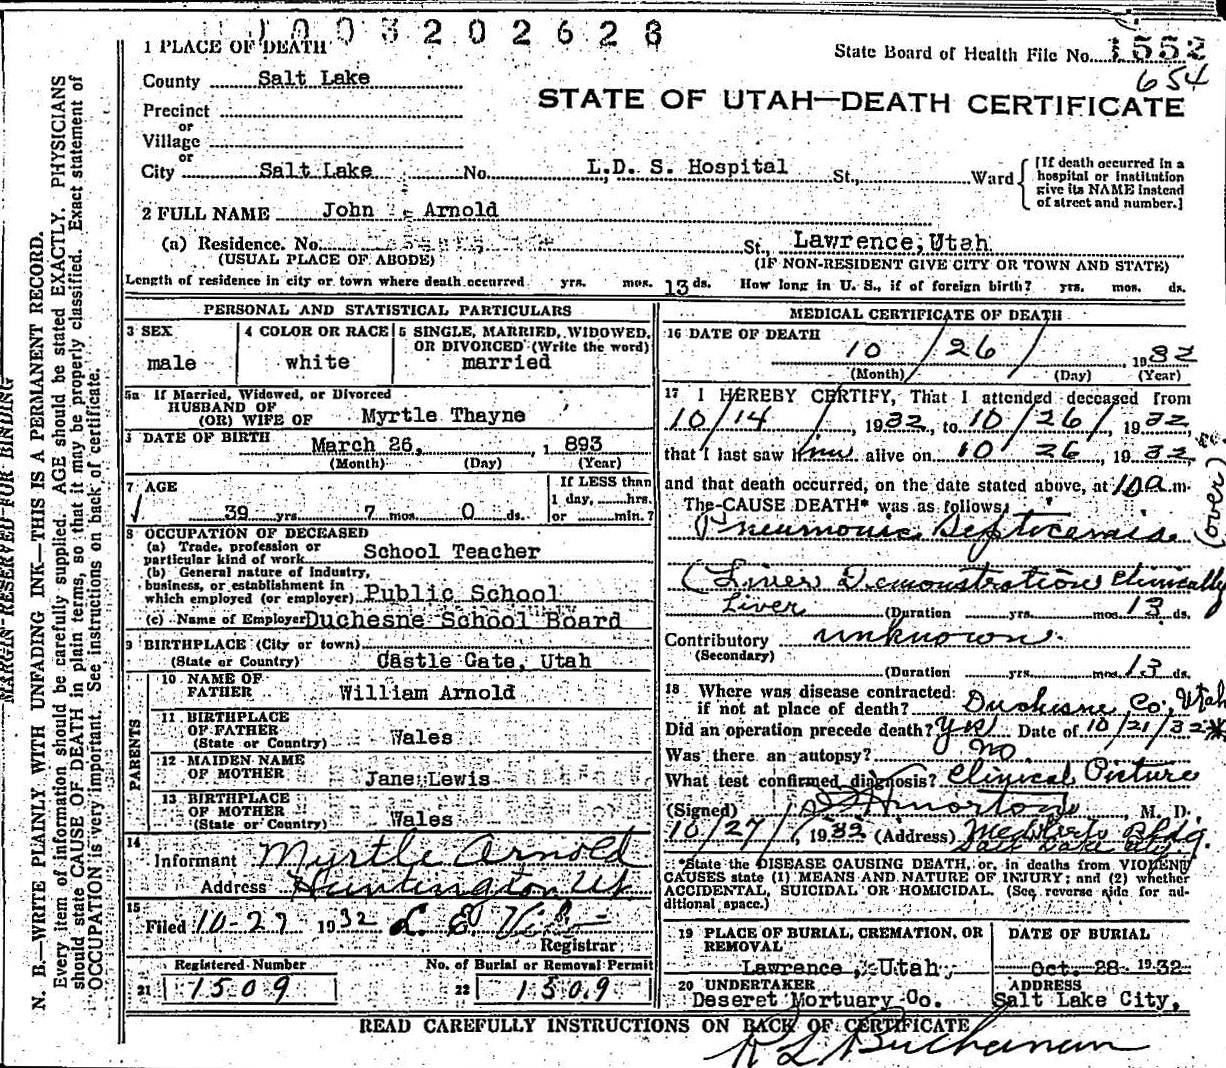 1003202628
1 PLACE OF DEATH
State Board of Health File No. 1552
654
County Salt Lake
STATE OF UTAH—DEATH CERTIFICATE
Precinct
or
Village
or
City Salt Lake No. L.D. S. Hospital St., Ward
[If death occurred in a
hospital or institution
give its NAME instead
of street and number.]
2 FULL NAME John Arnold
(a) Residence. No. St., Lawrence, Utah
(USUAL PLACE OF ABODE) (IF NON-RESIDENT GIVE CITY OR TOWN AND STATE)
Length of residence in city or town where death occurred yrs. mos. 13 ds. How long in U. S., if of foreign birth? yrs. mos. ds.
PERSONAL AND STATISTICAL PARTICULARS
3 SEX
male
4 COLOR OR RACE
white
5 SINGLE, MARRIED, WIDOWED,
OR DIVORCED (Write the word)
married
5a If Married, Widowed, or Divorced
HUSBAND OF
(OR) WIFE OF Myrtle Thayne
DATE OF BIRTH March 26, 1 893
(Month) (Day) (Year)
7 AGE
39 yrs. 7 mos. 0 ds.
If LESS than
1 day, hrs.
or min.?
8 OCCUPATION OF DECEASED
(a) Trade, profession or
particular kind of work School Teacher
(b) General nature of industry,
business, or establishment in
which employed (or employer) Public School
(c) Name of Employer Duchesne School Board
9 BIRTHPLACE (City or town)
(State or Country) Castle Gate, Utah
PARENTS
10 NAME OF
FATHER William Arnold
11 BIRTHPLACE
OF FATHER
(State or Country) Wales
12 MAIDEN NAME
OF MOTHER Jane Lewis
13 BIRTHPLACE
OF MOTHER
(State or Country) Wales
14
Informant Myrtle Arnold
Address Huntington Ut
15
Filed 10-27 1932 L. E.
Registrar
Registered Number
21 1509
No. of Burial or Removal Permit
22 1509
MEDICAL CERTIFICATE OF DEATH
16 DATE OF DEATH
10 / 26 / 1932
(Month) (Day) (Year)
17 I HEREBY CERTIFY, That I attended deceased from
10/14, 1932, to 10/26/, 1932,
that I last saw him alive on 10 26, 1932,
and that death occurred, on the date stated above, at 10 a. m.
The CAUSE DEATH* was as follows,
Pneumonic Septicemia
(over)
(Liver Demonstration Clinically
Liver
(Duration yrs. mos. 13 ds.
Contributory unknown
(Secondary)
(Duration yrs. mos. 13 ds.
18 Where was disease contracted:
if not at place of death? Duchesne Co, Utah
Did an operation precede death? Yes Date of 10/21/32*
Was there an autopsy? No
What test confirmed diagnosis? Clinical Picture
(Signed) Morton, M. D.
10/27/, 1932 (Address) Bldg.
Salt Lake City
*State the DISEASE CAUSING DEATH, or, in deaths from VIOLENT
CAUSES state (1) MEANS AND NATURE OF INJURY; and (2) whether
ACCIDENTAL, SUICIDAL OR HOMICIDAL. (See reverse side for ad-
ditional space.)
19 PLACE OF BURIAL, CREMATION, OR
REMOVAL
Lawrence, Utah,
DATE OF BURIAL
Oct. 28 1932
20 UNDERTAKER
Deseret Mortuary Co.
ADDRESS
Salt Lake City,
READ CAREFULLY INSTRUCTIONS ON BACK OF CERTIFICATE
R L Buchanan
MARGIN RESERVED FOR BINDING
N. B.—WRITE PLAINLY WITH UNFADING INK—THIS IS A PERMANENT RECORD.
Every item of information should be carefully supplied. AGE should be stated EXACTLY. PHYSICIANS
should state CAUSE OF DEATH in plain terms, so that it may be properly classified. Exact statement of
OCCUPATION is very important. See instructions on back of certificate.